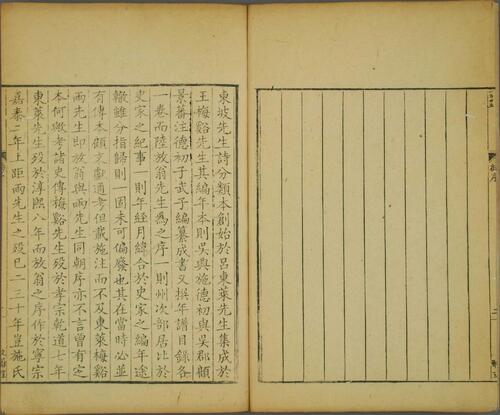 東坡先生詩分類本創始於呂東萊先生集成於
王梅谿先生其編年本則吳興施德初與吳郡顧
景蕃注德初子武子編纂成書又撰年譜目錄各
一卷而陸放翁先生爲之序一則州次部居比於
史家之紀事一則年經月緯合於史家之編年途
轍雖分指歸則一固未可偏廢也其在當時必並
有傳本顧文獻通考但載施注而不及東萊梅谿
兩先生即放翁與兩先生同朝序亦不言曾有定
本何歟考諸史傳梅谿先生歿於孝宗乾道七年
東萊先生歿於淳熙八年而放翁之序作於寧宗
嘉泰二年上距兩先生之歿已二三十年豈施氏